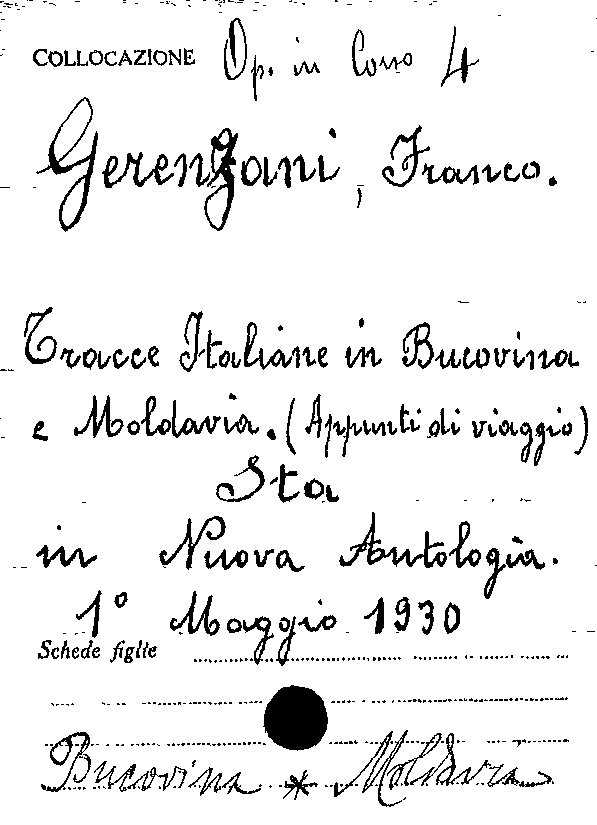 COLLOCAZIONE Op. in Corso 4
Gerenzani, Franco.
Tracce Italiane in Bucovina
e Moldavia. (Appunti di viaggio)
Sta
in Nuova Antologia.
1° Maggio 1930
Schede figlie
Bucovina * Moldavia